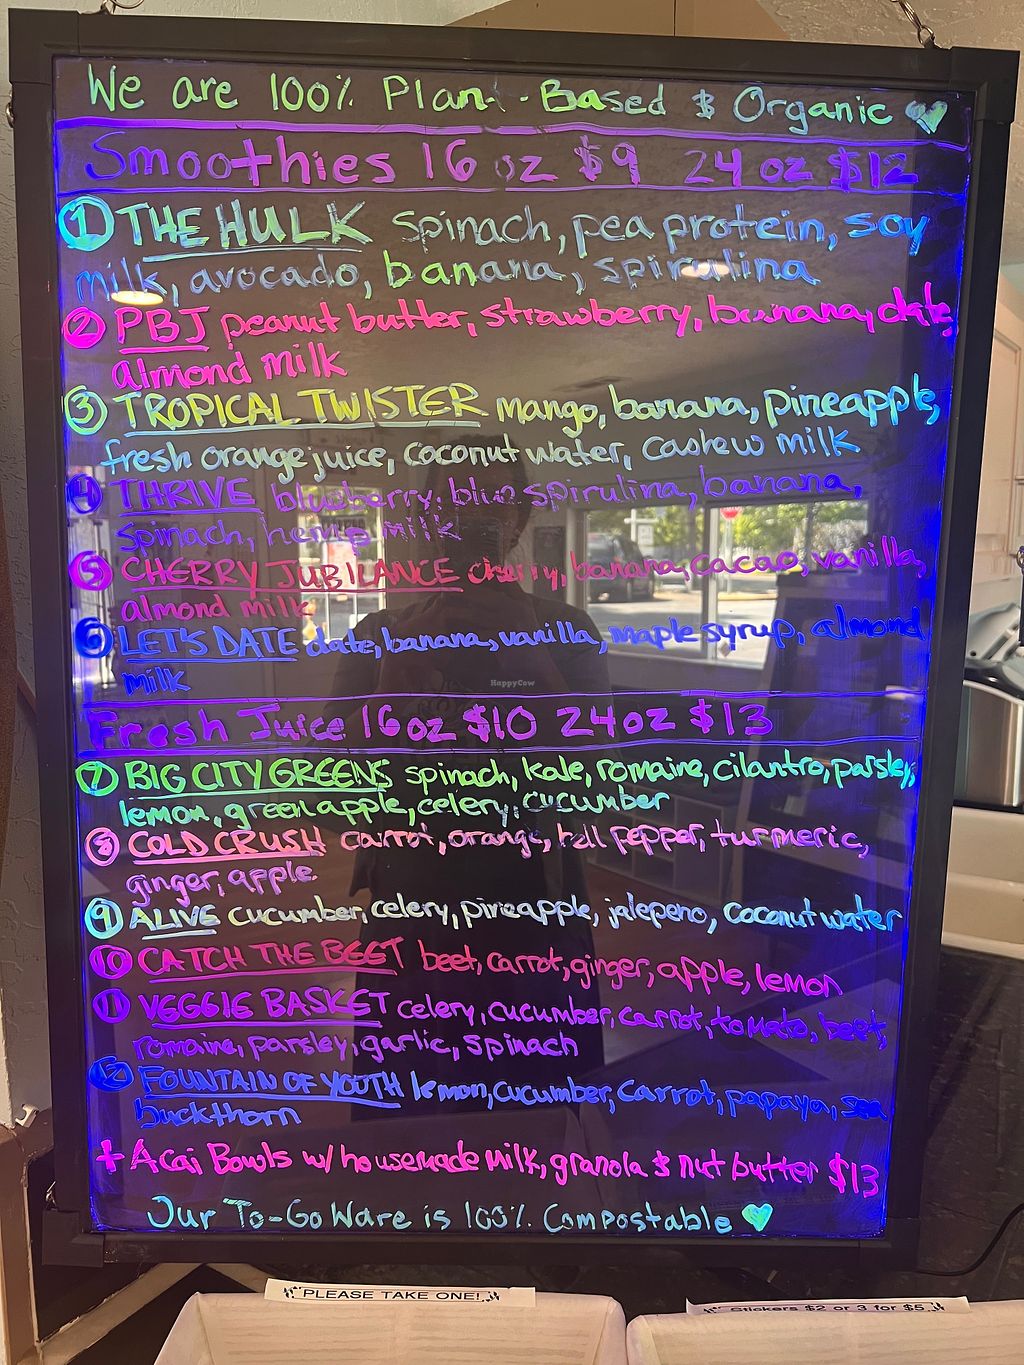 We are 100% Plant-Based & Organic
Smoothies 16 oz $9 24 oz $12
1 THE HULK spinach, pea protein, soy
milk, avocado, banana, spirulina
2 PBJ peanut butter, strawberry, banana, date,
almond milk
3 TROPICAL TWISTER mango, banana, pineapple,
fresh orange juice, coconut water, cashew milk
4 THRIVE blueberry, blue spirulina, banana,
spinach, hemp milk
5 CHERRY JUBILANCE cherry, banana, cacao, vanilla,
almond milk
6 LET'S DATE date, banana, vanilla, maple syrup, almond
milk
HappyCow
Fresh Juice 16oz $10 24oz $13
7 BIG CITY GREENS spinach, kale, romaine, cilantro, parsley,
lemon, green apple, celery, cucumber
8 COLD CRUSH carrot, orange, bell pepper, turmeric,
ginger, apple
9 ALIVE cucumber, celery, pineapple, jalepeno, coconut water
10 CATCH THE BEET beet, carrot, ginger, apple, lemon
11 VEGGIE BASKET celery, cucumber, carrot, tomato, beet,
romaine, parsley, garlic, spinach
12 FOUNTAIN OF YOUTH lemon, cucumber, carrot, papaya, sea
buckthorn
+ Acai Bowls w/ housemade milk, granola & nut butter $13
Our To-Go Ware is 100% Compostable
PLEASE TAKE ONE!
Stickers $2 or 3 for $5